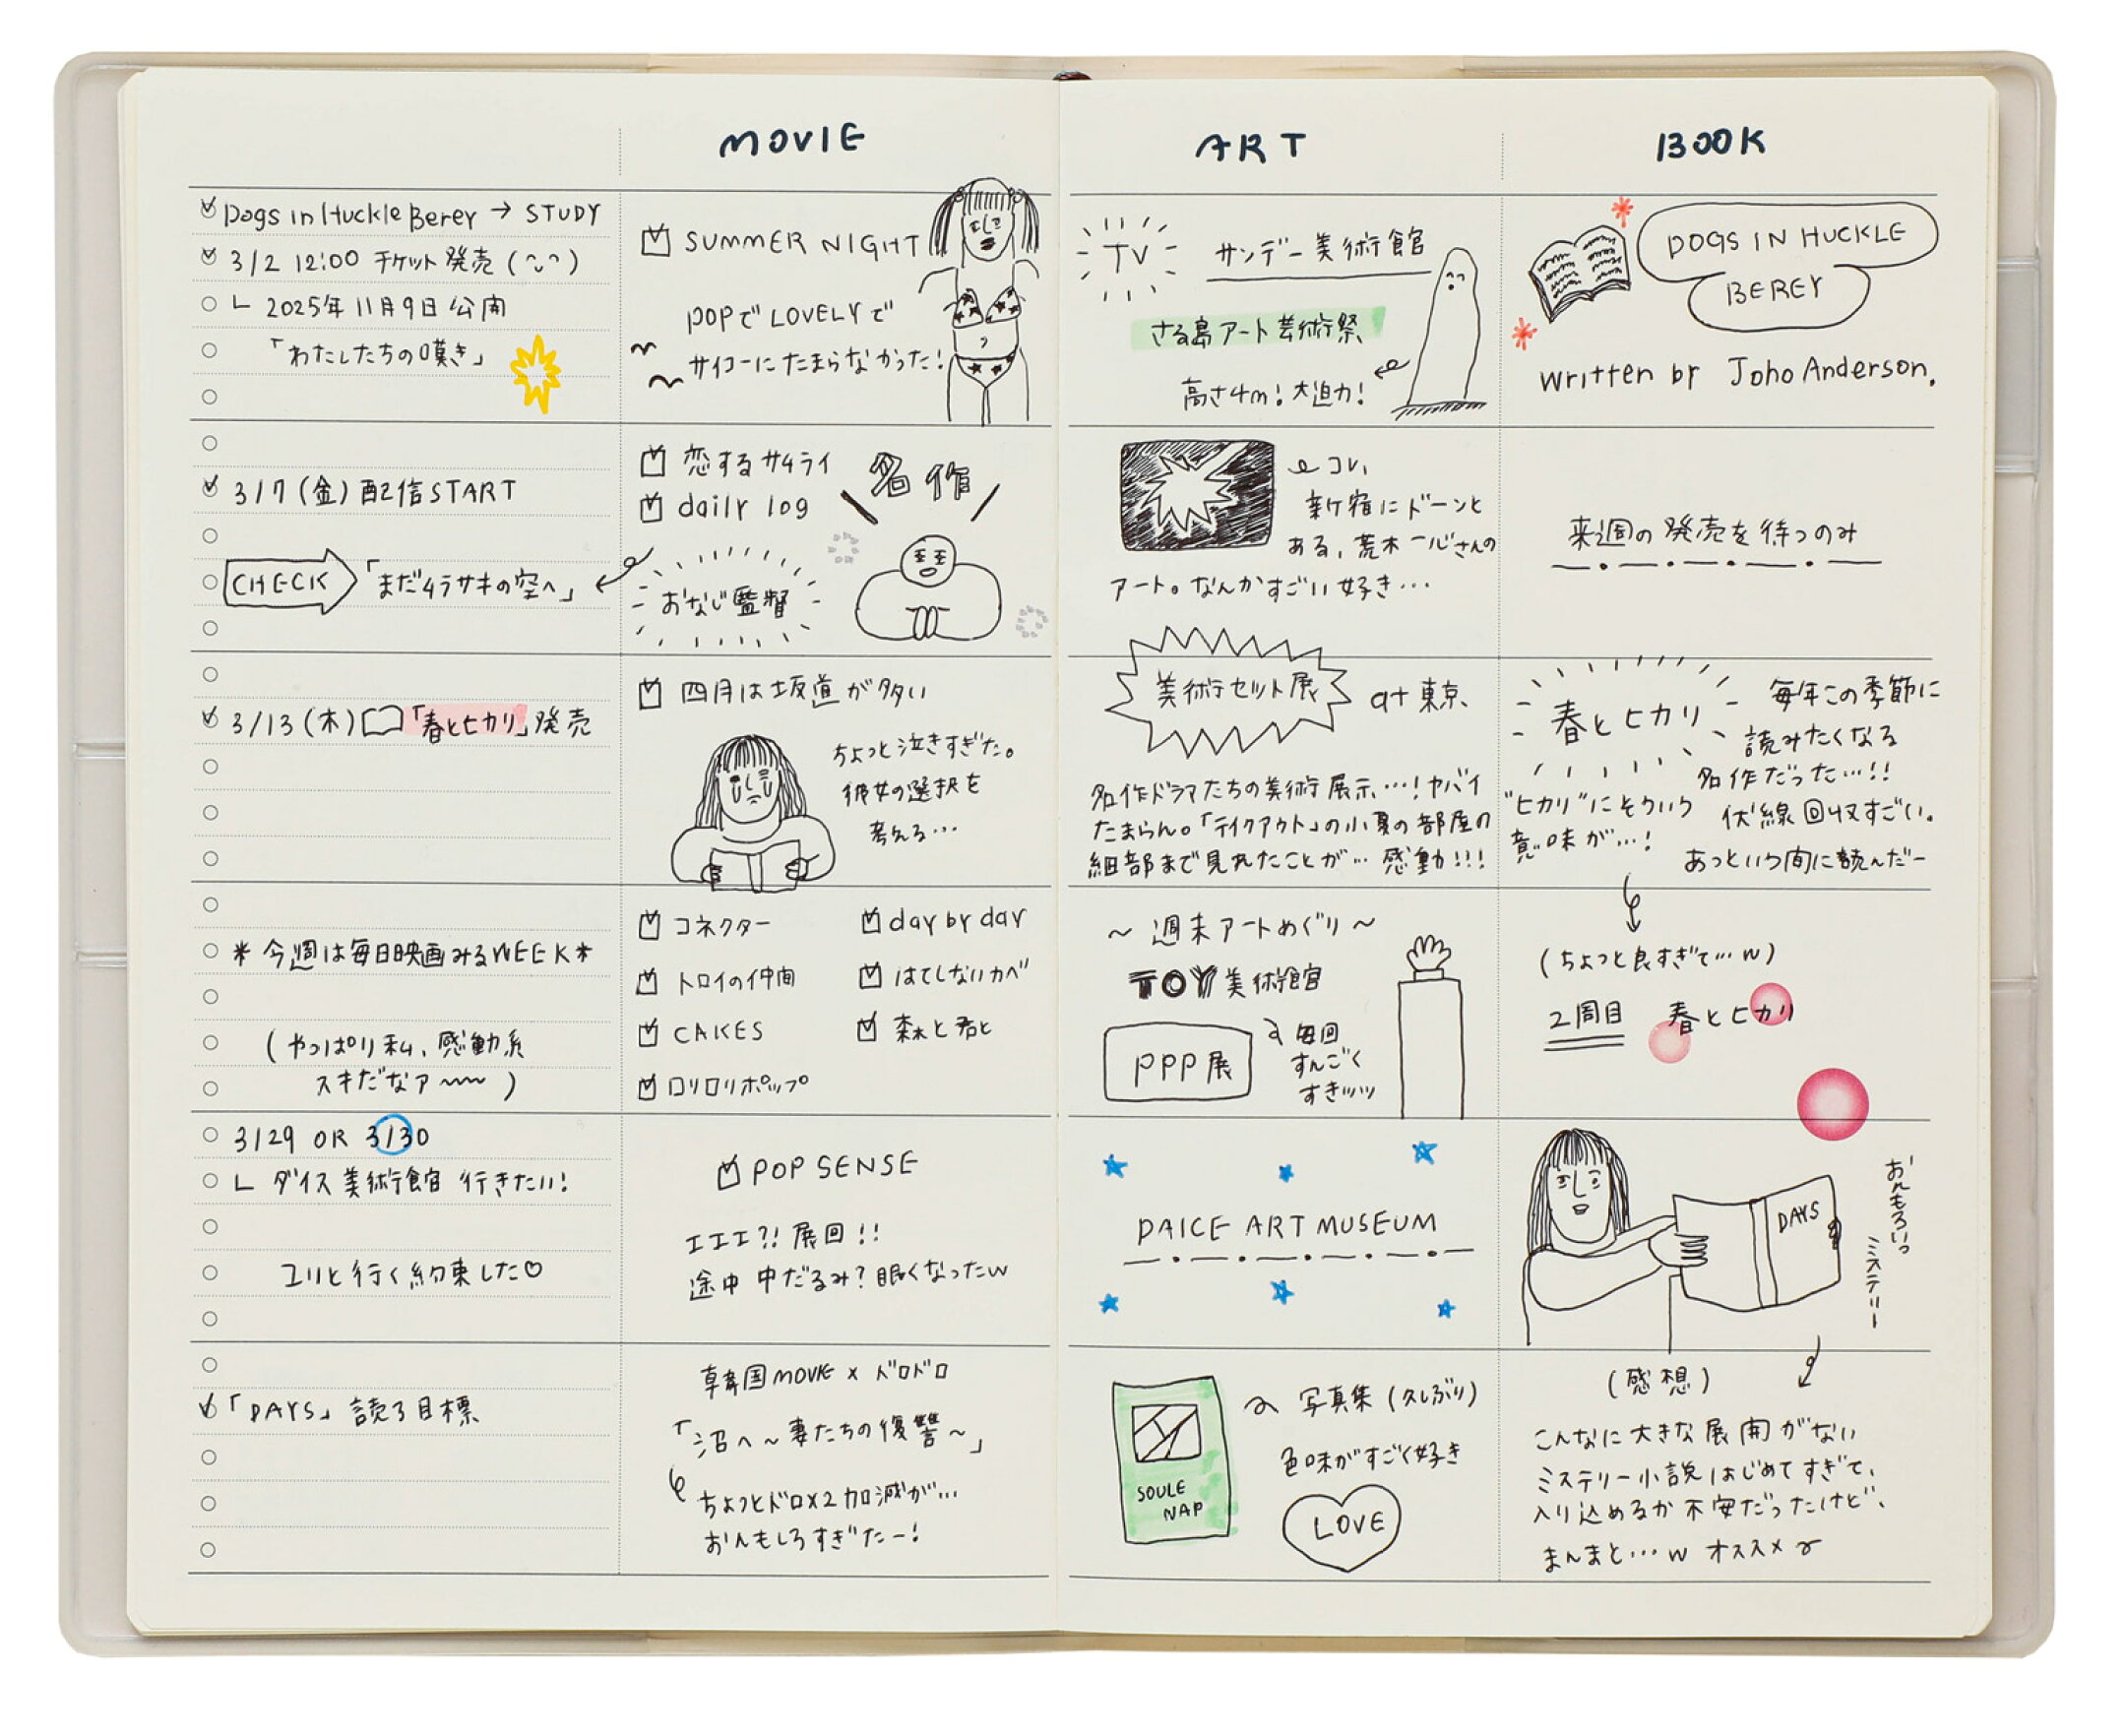 MOVIE
ART
BOOK
Dogs in Huckle Berey → STUDY
3/2 12:00 チケット発売 (^◡^)
∟ 2025年11月9日公開
「わたしたちの嘆き」
SUMMER NIGHT
POPでLOVELYで
サイコーにたまらなかった!
TV
サンデー美術館
さる島アート芸術祭
高さ4m!大迫力!
DOGS IN HUCKLE
BEREY
written by Joho Anderson.
3/7(金)配信START
CHECK
「まだムラサキの空へ」
恋するサムライ
daily log
名作
おなじ監督
コレ、
新宿にドーンと
ある、荒木一心さんの
アート。なんかすごい好き…
来週の発売を待つのみ
3/13(木)「春とヒカリ」発売
四月は坂道が多い
ちょっと泣きすぎた。
彼女の選択を
考える…
美術セット展
at 東京
名作ドラマたちの美術展示…!ヤバイ
たまらん。「テイクアウト」の小夏の部屋の
細部まで見れたことが… 感動!!!
春とヒカリ
毎年この季節に
読みたくなる
名作だった…!!
"ヒカリ"にそういう
意味が…!
伏線回収すごい。
あっという間に読んだー
*今週は毎日映画みるWEEK*
(やっぱり私、感動系
スキだなァ〜〜)
コネクター
day by day
トロイの仲間
はてしないカベ
CAKES
森と君と
ロリロリポップ
〜週末アートめぐり〜
TOY美術館
PPP展
毎回
すんごく
すきッッッ
(ちょっと良すぎて…w)
2周目
春とヒカリ
3/29 OR 3/30
∟ ダイス美術館 行きたい!
ユリと行く約束した♡
POP SENSE
エエエ?!展回!!
途中 中だるみ?眠くなったw
DAICE ART MUSEUM
DAYS
おんもろいっ
ミステリー
「DAYS」読了目標
韓国MOVIE×ドロドロ
「沼へ〜妻たちの復讐〜」
ちょっとドロ×2加減が…
おんもしろすぎたー!
SOULE
NAP
写真集(久しぶり)
色味がすごく好き
LOVE
(感想)
こんなに大きな展開がない
ミステリー小説はじめてすぎて、
入り込めるか不安だったけど、
まんまと…w オススメ